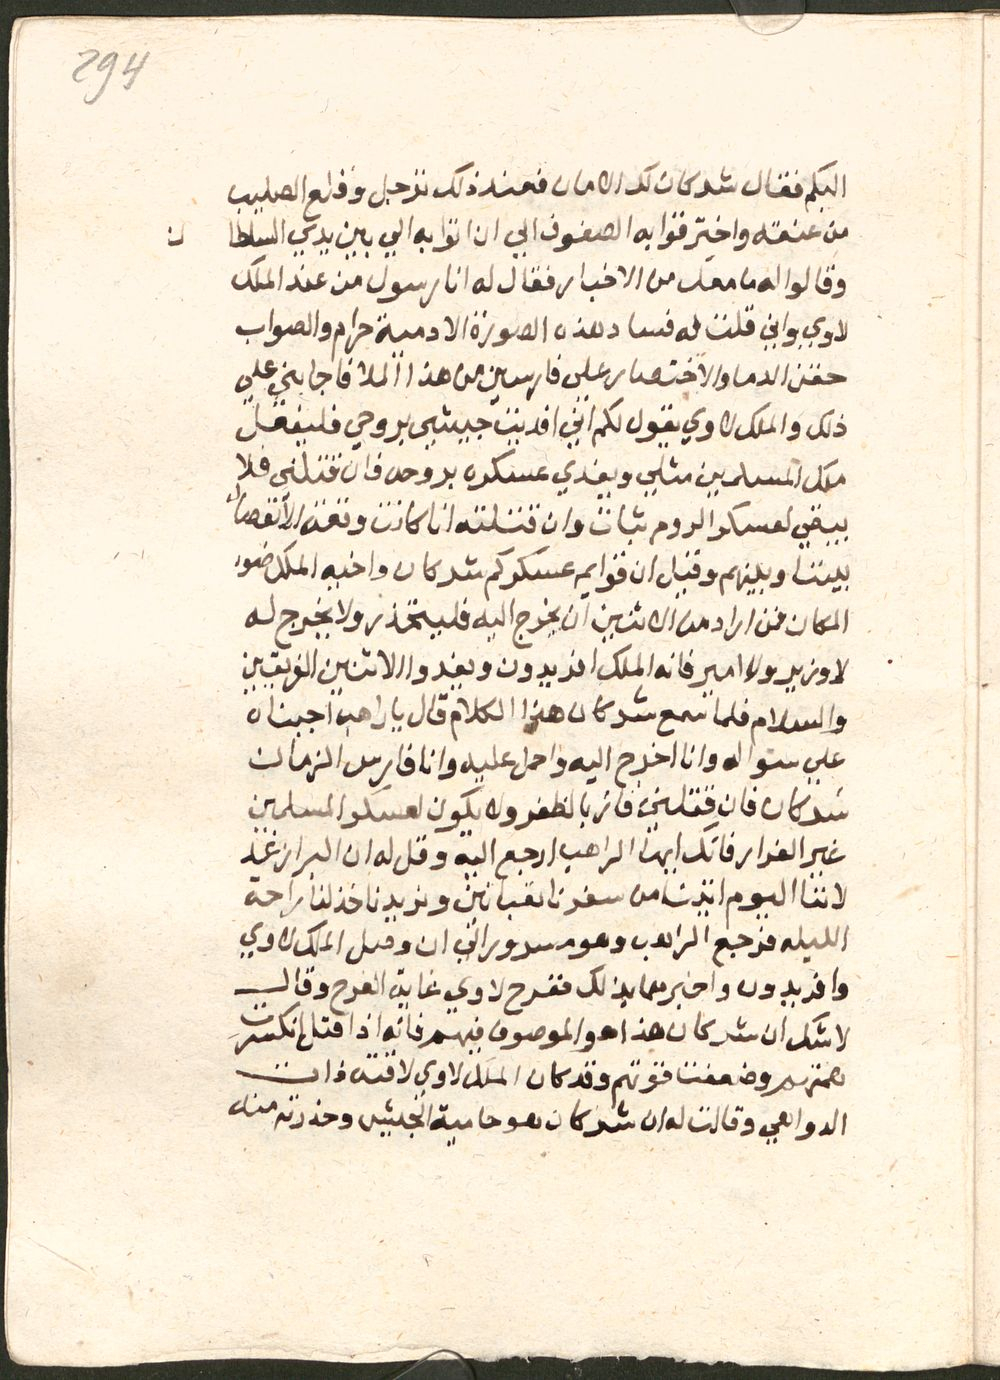 294
اليكم فقال شركان لك الامان فعند ذلك ترجل وقلع الصليب
من عنقه واخترقوا به الصفوف الي ان اتوا به الي بين يدي السلطان
وقالوا له ما معك من الاخبار فقال له انا رسول من عند الملك
لاوي واني قلت له فساد هذه الصورة الادمية حرام والصواب
حقن الدما والاختصار علي فارسين من هذا الملا فاجابني علي
ذلك والملك لاوي يقول لكم اني افديت جيشي بروحي فليفعل
ملك المسلمين مثلي ويفدي عسكره بروحه فان قتلني فلا
يبقي لعسكر الروم ثبات وان قتلته انا كانت وقعة الانفصال
بيننا وبينهم وقيل ان قوايم عسكركم شركان واخيه الملك ضو
المكان فمن اراد من الاثنين ان يخرج اليه فليتحذر ولا يخرج له
لا وزير ولا امير فانه الملك افريدون ويفدوا الاثنين الفريقين
والسلام فلما سمع شركان هذا الكلام قال يا راهب اجبناه
علي سواله وانا اخرج اليه واحمل عليه وانا فارس الزمان
شركان فان قتلني فاز بالظفر ولا يكون لعسكر المسلمين
غير الفرار فانك ايها الراهب ارجع اليه وقل له ان البراز غد
لاننا اليوم اتينا من سفرنا تعبانين ونريد ناخذ لنا راحة
الليله فرجع الراهب وهو مسرور الي ان وصل الملك لاوي
وافريدون واخبرهما بذلك ففرح لاوي غاية الفرح وقال
لا شك ان شركان هذا هو الموصوف فيهم فانه اذا قتل انكسرت
همتهم وضعفت قوتهم وقد كان الملك لاوي لاقته ذات
الدواهي وقالت له ان شركان هو حامية الجيش وحذرته منه